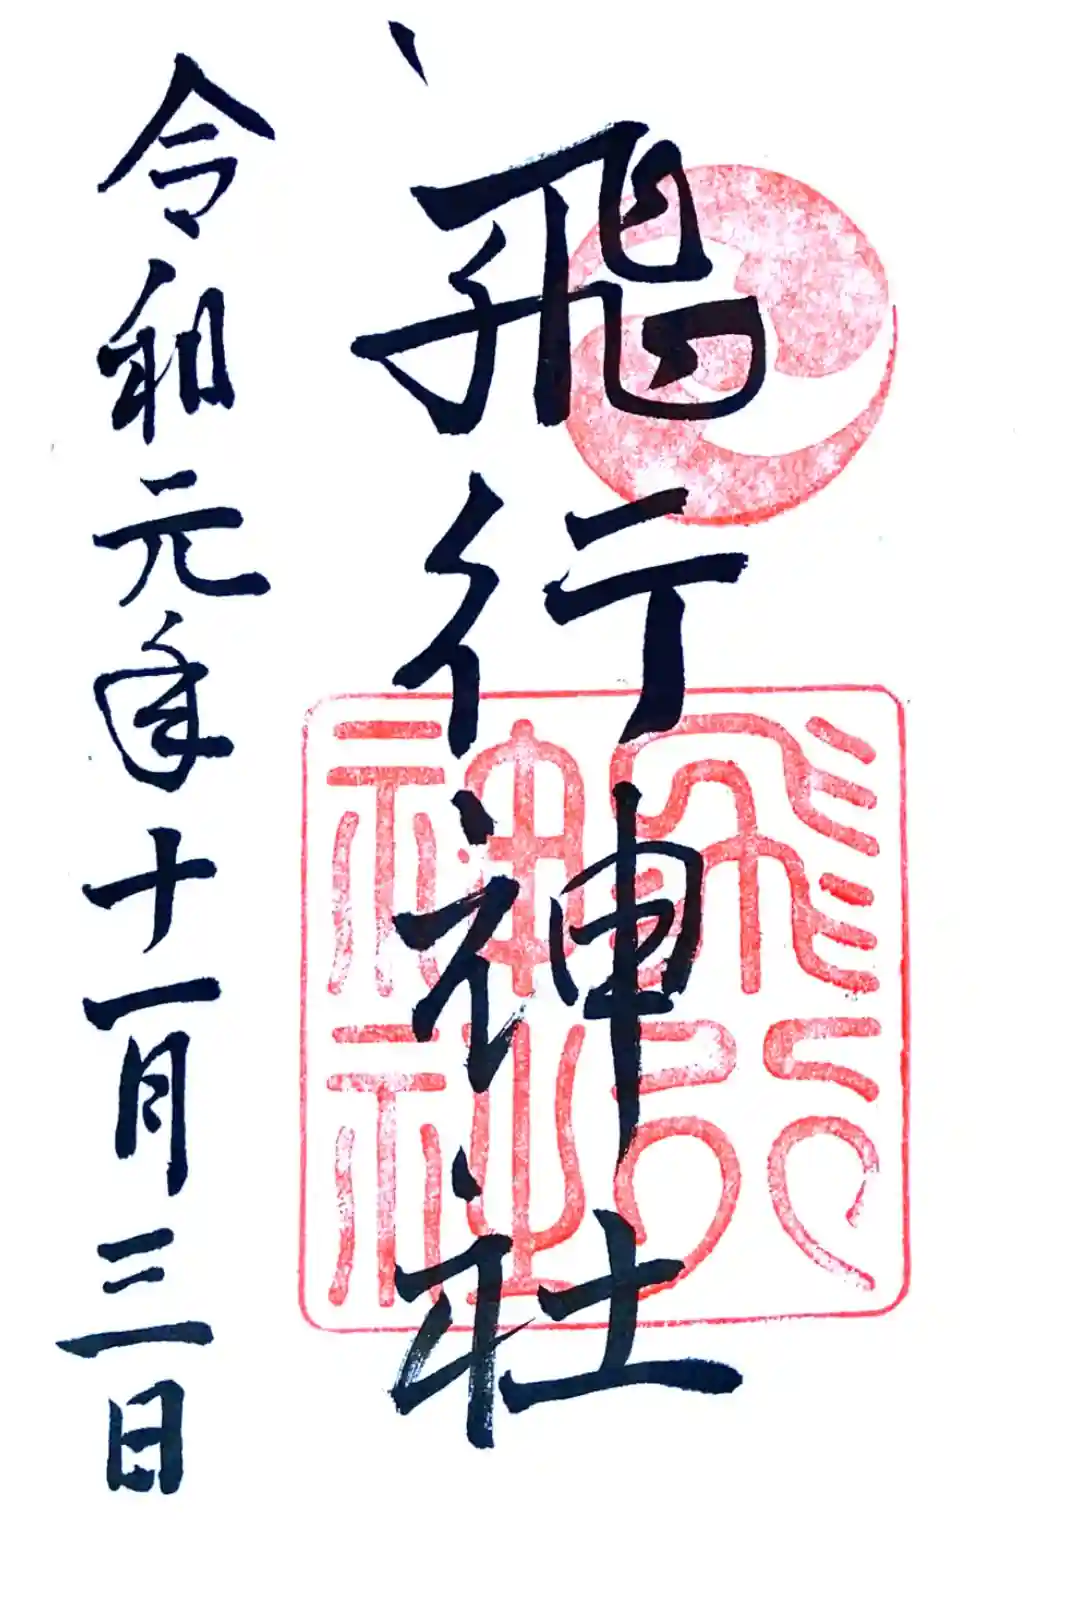 飛行神社
令和元年十一月三日
飛行
神社